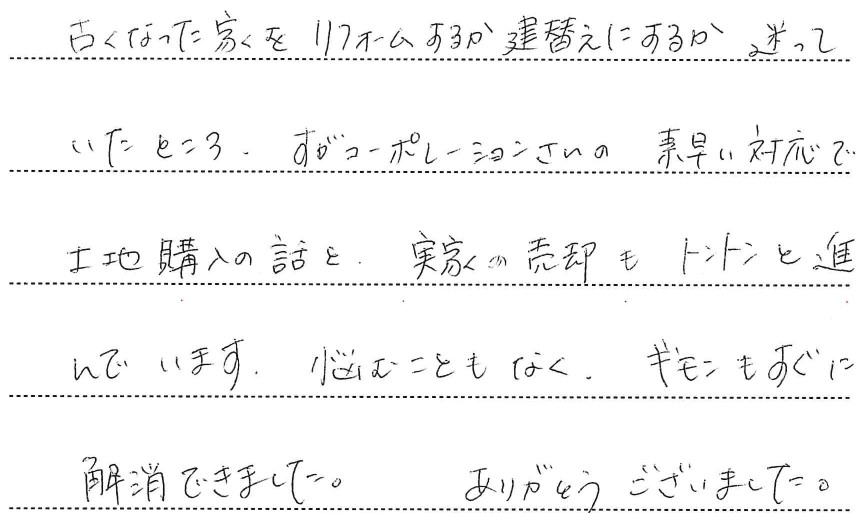 古くなった家をリフォームするか建替えにするか迷って
いたところ、すがコーポレーションさんの素早い対応で
土地購入の話と、実家の売却もトントンと進
んでいます。悩むこともなく、ギモンもすぐに
解消できました。 ありがとうございました。